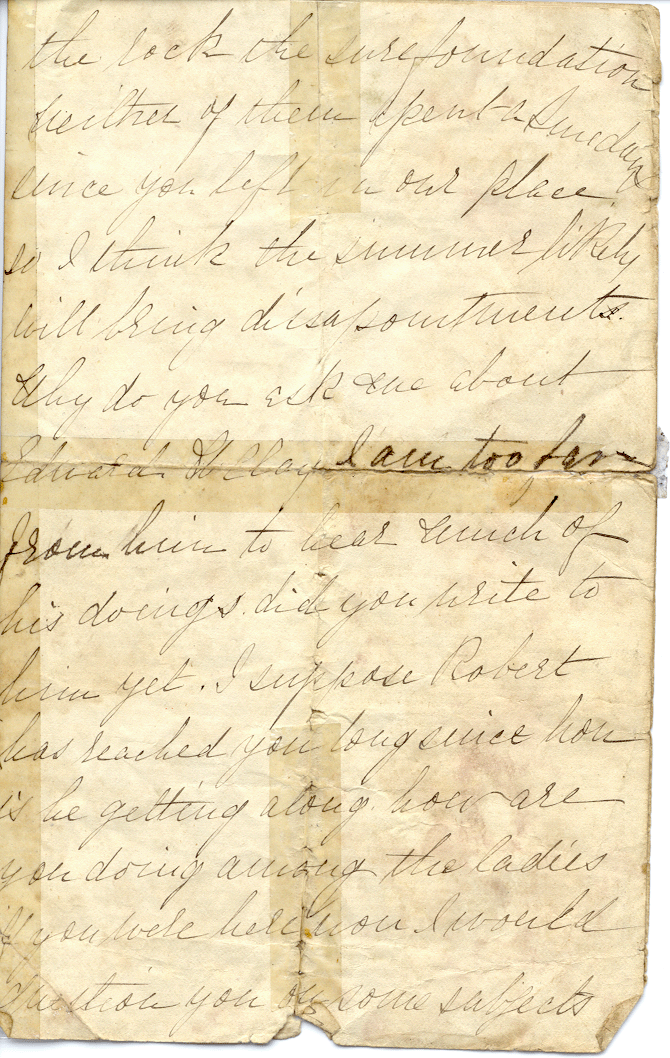 the rock the sure foundation
neither of them spent a Sunday
since you left in our place
so I think the summer likely
will bring dissapointments.
Why do you ask me about
Edward I am too far
from him to hear much of
his doings. did you write to
him yet. I suppose Robert
has reached you long since how
is he getting along. how are
you doing among the ladies
if you were here now I would
question you on some subjects